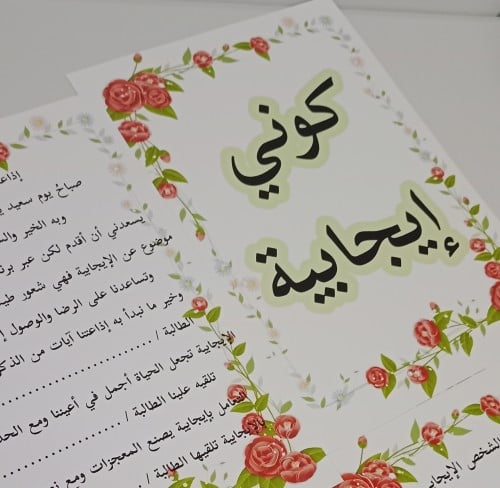 كوني
إيجابية
صباحُ يوم سعيد
وبه الخير
يسعدني أن أقدم لكن عبر
موضوع عن الإيجابية فهي شعور
وتساعدنا على الرضا والوصول
وخير ما نبدأ به إذاعتنا آيات من الذكر
الطالبة / ........................
الإيجابية تجعل الحياة أجمل في أعيننا ومع
تلقيه علينا الطالبة / ........................
التعامل بإيجابية يصنع المعجزات ومع
الإيجابية تلقيها الطالبة / ........................